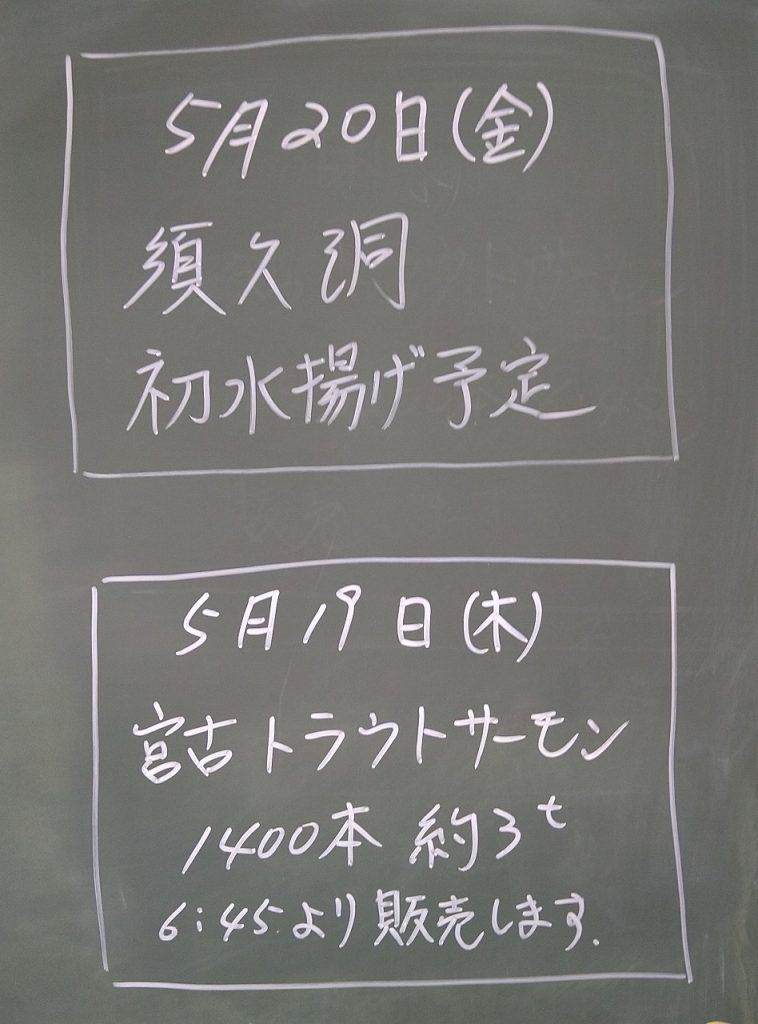 5月20日(金)
須久洞
初水揚げ予定
5月19日(木)
宮古トラウトサーモン
1400本 約3t
6:45より販売します.